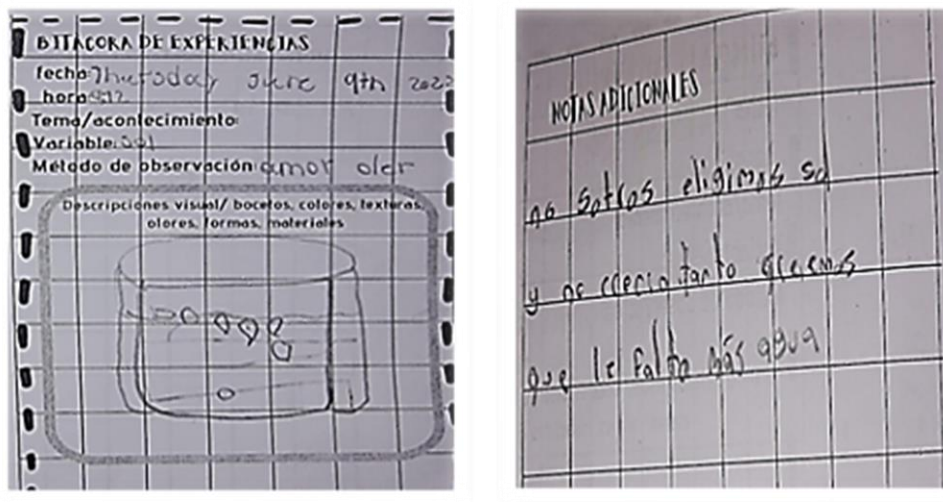 BITÁCORA DE EXPERIENCIAS
fecha: Thursday June 9th 2022
hora:
Tema/acontecimiento:
Variable: Sol
Método de observación: oler
Descripciones visual/ bocetos, colores, texturas,
olores, formas, materiales
NOTAS ADICIONALES
no sotros eligimos sol
y no crecio tanto creemos
que le falto más agua